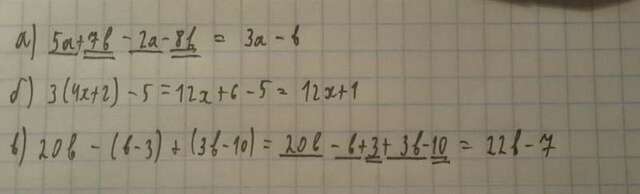 а) 5a+7b-2a-8b = 3a-b
б) 3(4x+2)-5=12x+6-5=12x+1
в) 20b-(b-3)+(3b-10)=20b-b+3+3b-10=22b-7